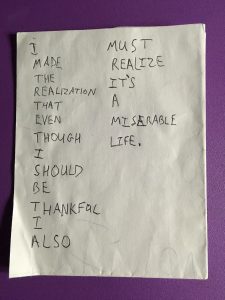 I
MADE
THE
REALIZATION
THAT
EVEN
THOUGH
I
SHOULD
BE
THANKFUL
I
ALSO
MUST
REALIZE
IT'S
A
MISERABLE
LIFE.